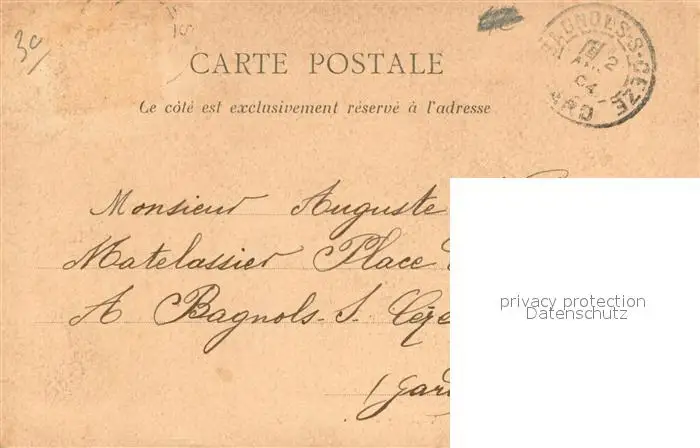 3c
CARTE POSTALE
Ce côté est exclusivement réservé à l'adresse
BAGNOLS-S-CEZE
2
04
GARD
Monsieur Auguste
Matelassier Place
A Bagnols-S. Cèze
(Gard
privacy protection
Datenschutz